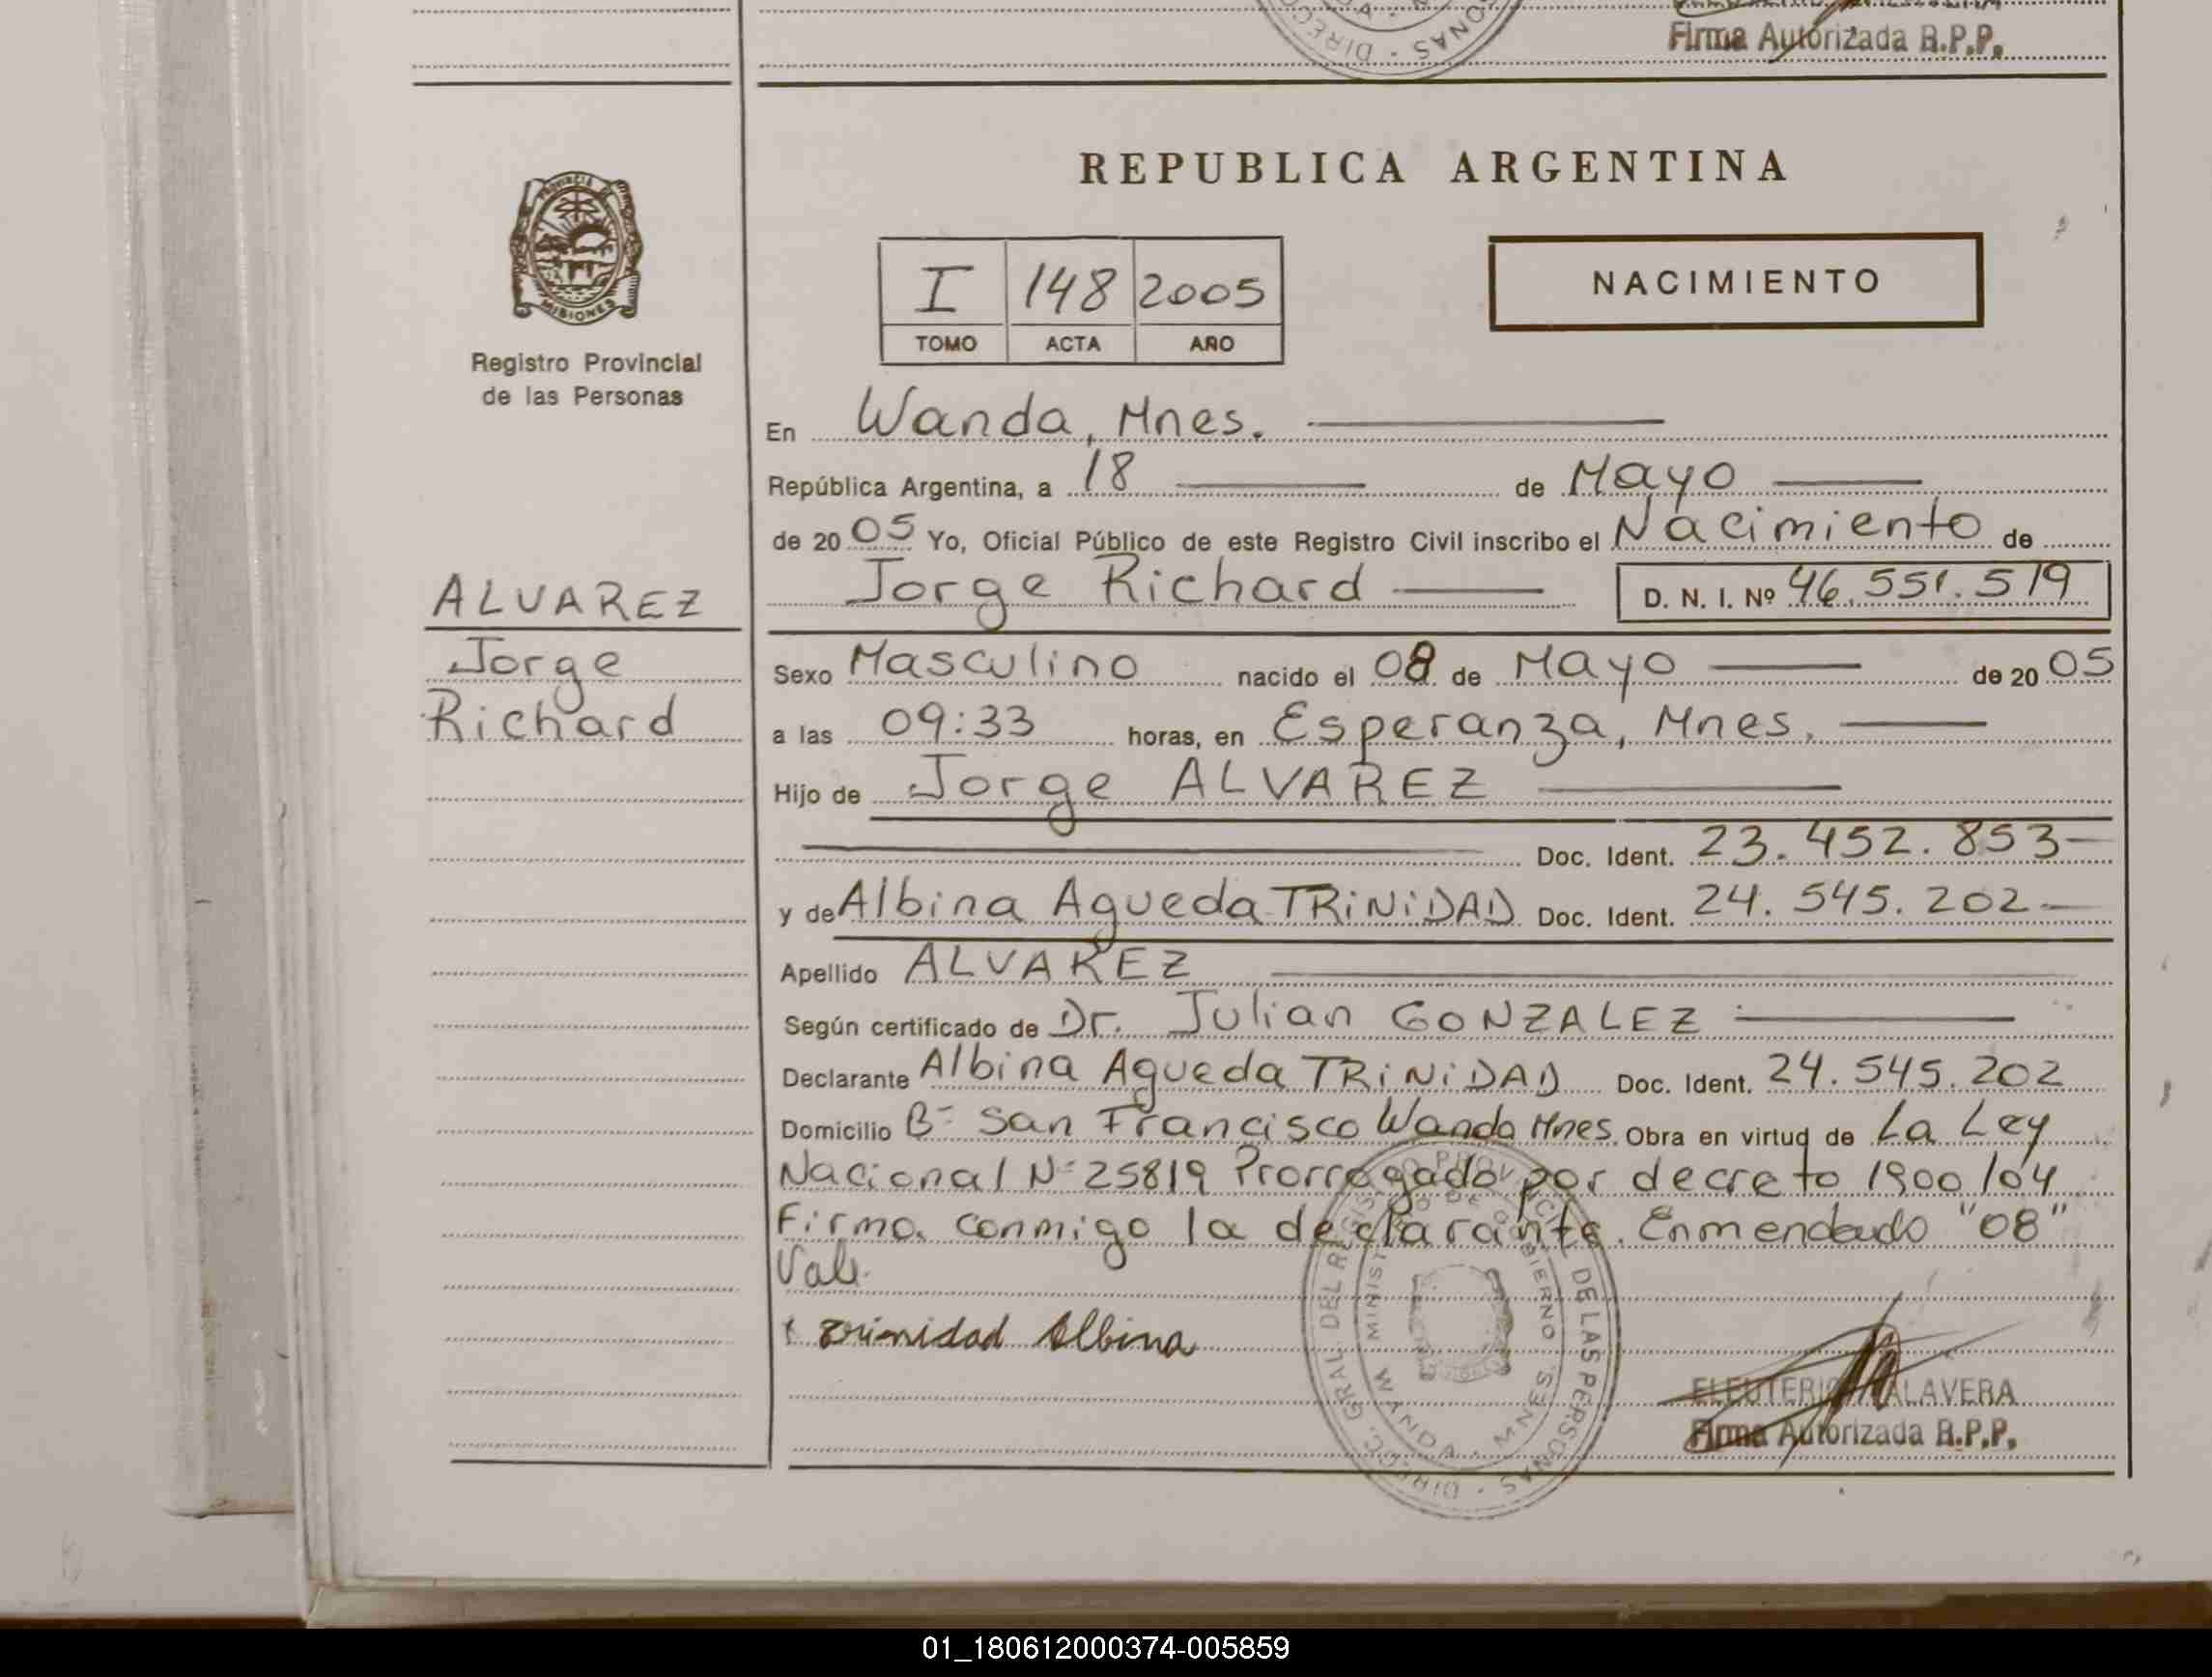 Firma Autorizada R.P.P.
REPUBLICA ARGENTINA
NACIMIENTO
I 148 2005
TOMO ACTA AÑO
PROVINCIA DE
MISIONES
Registro Provincial
de las Personas
En Wanda, Mnes.
República Argentina, a 18 de Mayo
de 20 05 Yo, Oficial Público de este Registro Civil inscribo el Nacimiento de
Jorge Richard D. N. I. Nº 46.551.519
ALVAREZ
Jorge
Richard
Sexo Masculino nacido el 08 de Mayo de 20 05
a las 09:33 horas, en Esperanza, Mnes.
Hijo de Jorge ALVAREZ
Doc. Ident. 23.452.853
y de Albina Agueda TRiNiDAD Doc. Ident. 24.545.202
Apellido ALVAREZ
Según certificado de Dr. Julian GONZALEZ
Declarante Albina Agueda TRiNiDAD Doc. Ident. 24.545.202
Domicilio Bº San Francisco Wanda Mnes. Obra en virtud de La Ley
Nacional Nº 25819 Prorrogado por decreto 1900/04
Firma conmigo la declarante. Enmendado "08"
Vale.
x Trinidad Albina
DIRECC. GRAL. DEL REGISTRO PROVINCIAL DE LAS PERSONAS
MINISTERIO DE GOBIERNO
WANDA - MNES.
ELEUTERIO TALAVERA
Firma Autorizada R.P.P.
01_180612000374-005859